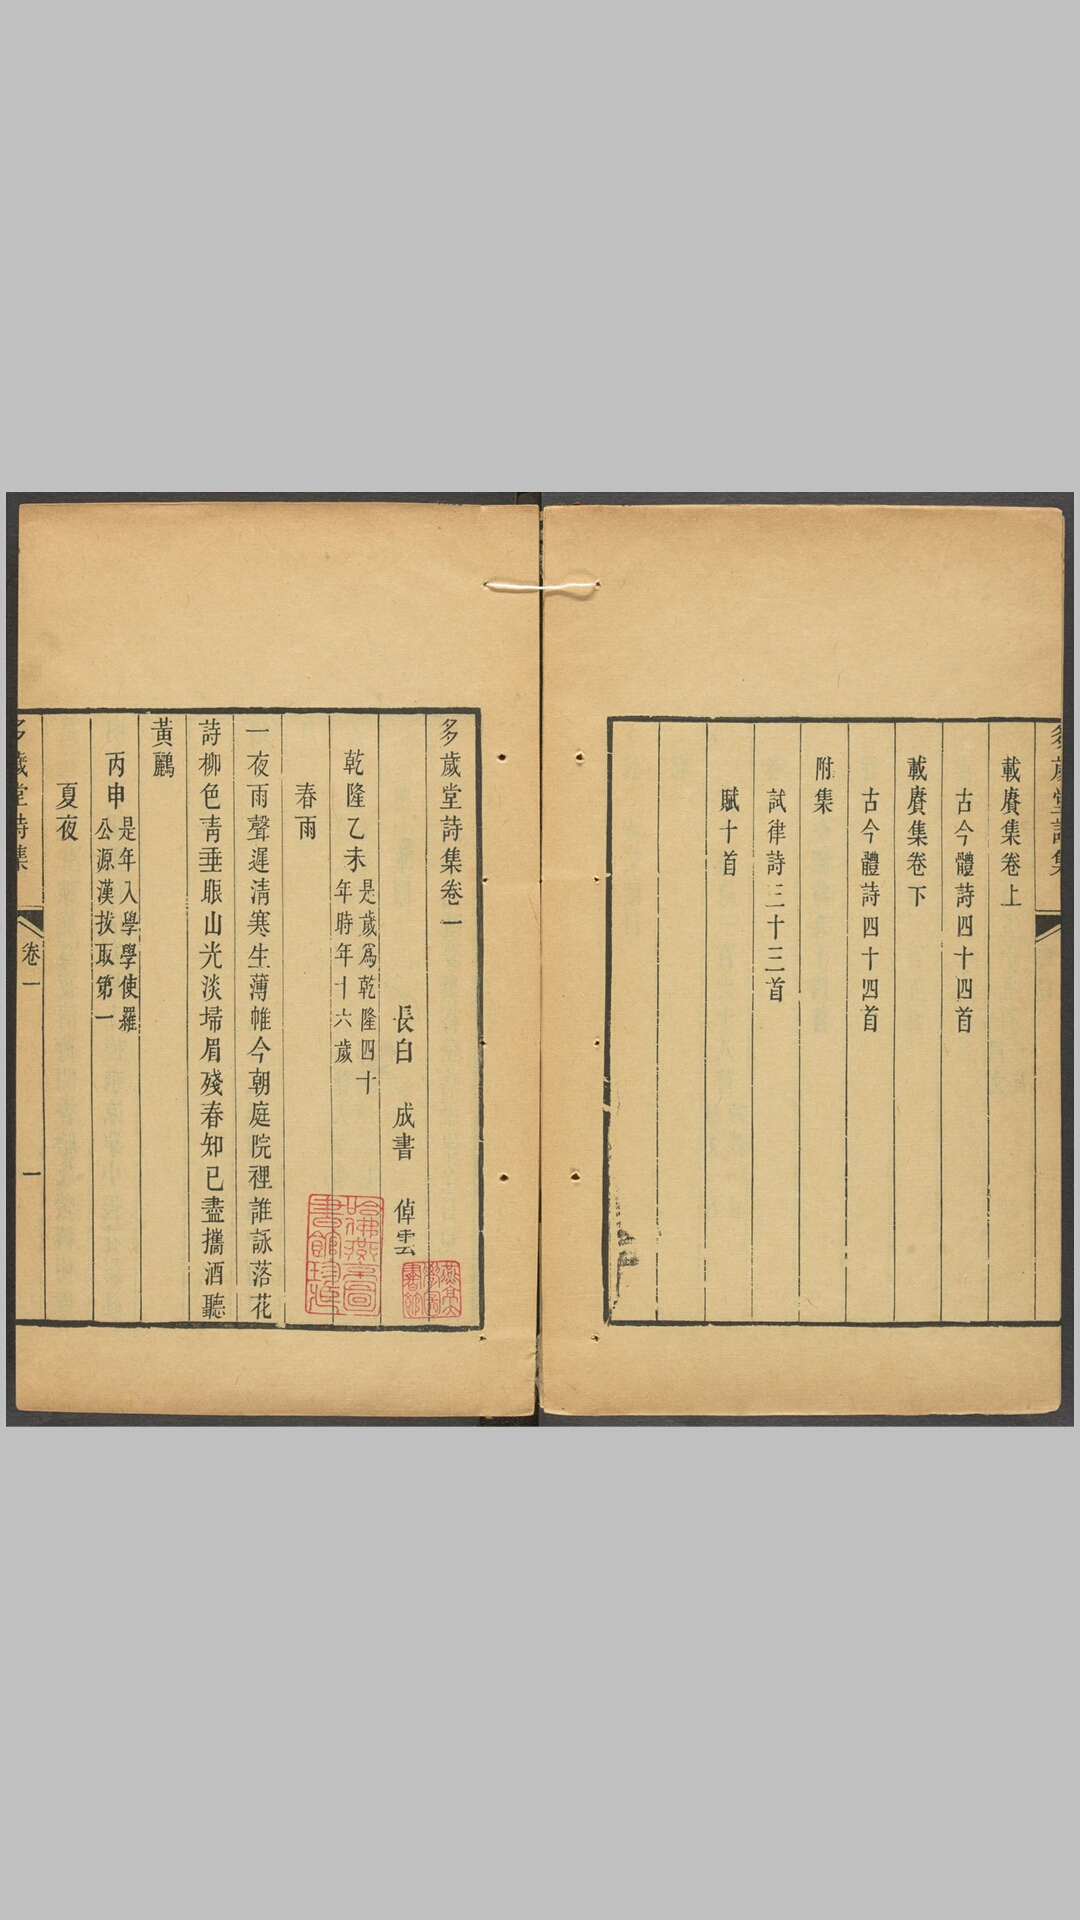 多歲堂詩集
載賡集卷上
古今體詩四十四首
載賡集卷下
古今體詩四十四首
附集
試律詩三十三首
賦十首
多歲堂詩集卷一
長白 成書 倬雲
乾隆乙未
是歲爲乾隆四十
年時年十六歲
春雨
一夜雨聲遲清寒生薄帷今朝庭院裡誰詠落花
詩柳色青垂眼山光淡埽眉殘春知已盡攜酒聽
黃鸝
丙申
是年入學學使羅
公源漢拔取第一
夏夜
多歲堂詩集
卷一
一
哈佛燕京圖
書館珍藏